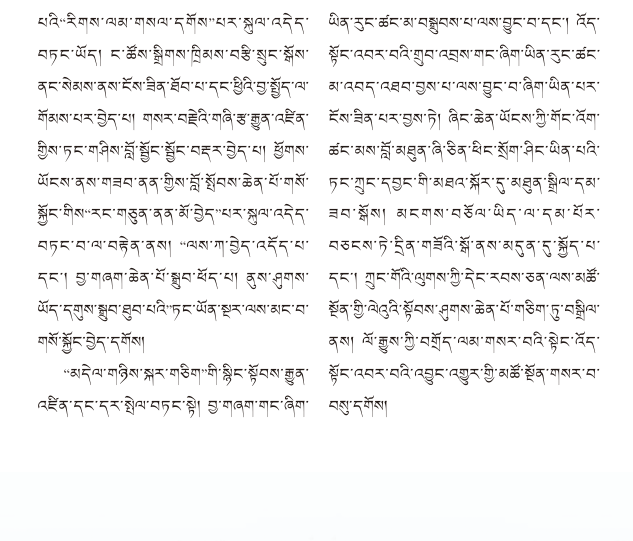 པའི“རིགས་ལམ་གསལ་དགོས”པར་སྐུལ་འདེད་
བཏང་ཡོད། ང་ཚོས་སྒྲིགས་ཁྲིམས་བརྩི་སྲུང་སྒོས་
ནང་སེམས་ནས་ངོས་ཟིན་ཐོབ་པ་དང་ཕྱིའི་བྱ་སྤྱོད་ལ་
གོམས་པར་བྱེད་པ། གསར་བརྗེའི་གཞི་རྩ་རྒྱུན་འཛིན་
གྱིས་ཏང་གཤིས་བློ་སྦྱོང་སྦྱོང་བརྡར་བྱེད་པ། ཕྱོགས་
ཡོངས་ནས་གཟབ་ནན་གྱིས་བློ་སྤོབས་ཆེན་པོ་གསོ་
སྐྱོང་གིས“རང་གཅུན་ནན་མོ་བྱེད”པར་སྐུལ་འདེད་
བཏང་བ་ལ་བརྟེན་ནས། “ལས་ཀ་བྱེད་འདོད་པ་
དང་། བྱ་གཞག་ཆེན་པོ་སྒྲུབ་ཕོད་པ། ནུས་ཤུགས་
ཡོད་དགུས་སྒྲུབ་ཐུབ་པའི”ཏང་ཡོན་སྔར་ལས་མང་བ་
གསོ་སྐྱོང་བྱེད་དགོས།
“མདེལ་གཉིས་སྐར་གཅིག”གི་སྙིང་སྟོབས་རྒྱུན་
འཛིན་དང་དར་སྤེལ་བཏང་སྟེ། བྱ་གཞག་གང་ཞིག་
ཡིན་རུང་ཚང་མ་བསྒྲུབས་པ་ལས་བྱུང་བ་དང་། འོད་
སྟོང་འབར་བའི་གྲུབ་འབྲས་གང་ཞིག་ཡིན་རུང་ཚང་
མ་འབད་འཐབ་བྱས་པ་ལས་བྱུང་བ་ཞིག་ཡིན་པར་
ངོས་ཟིན་པར་བྱས་ཏེ། ཞིང་ཆེན་ཡོངས་ཀྱི་གོང་འོག་
ཚང་མས་བློ་མཐུན་ཞི་ཅིན་ཕིང་སྲོག་ཤིང་ཡིན་པའི་
ཏང་ཀྲུང་དབྱང་གི་མཐའ་སྐོར་དུ་མཐུན་སྒྲིལ་དམ་
ཟབ་སྒོས། མངགས་བཅོལ་ཡིད་ལ་དམ་པོར་
བཅངས་ཏེ་དྲིན་གཟོའི་སྒོ་ནས་མདུན་དུ་སྐྱོད་པ་
དང་། ཀྲུང་གོའི་ལུགས་ཀྱི་དེང་རབས་ཅན་ལས་མཚོ་
སྔོན་གྱི་ལེའུའི་སྟོབས་ཤུགས་ཆེན་པོ་གཅིག་ཏུ་བསྒྲིལ་
ནས། ལོ་རྒྱུས་ཀྱི་བགྲོད་ལམ་གསར་བའི་སྟེང་འོད་
སྟོང་འབར་བའི་འབྱུང་འགྱུར་གྱི་མཚོ་སྔོན་གསར་བ་
བསུ་དགོས།